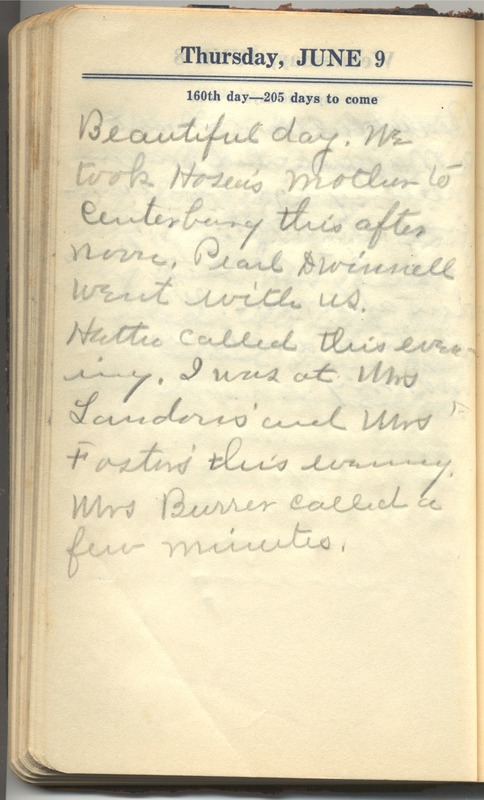 Thursday, JUNE 9
160th day—205 days to come
Beautiful day. We
took Hosea's mother to
Centerburg this after
noon. Pearl Dwinnell
went with us.
Hattie called this even-
ing. I was at Mrs
Landon's and Mrs
Foster's this evening.
Mrs Burrer called a
few minutes.